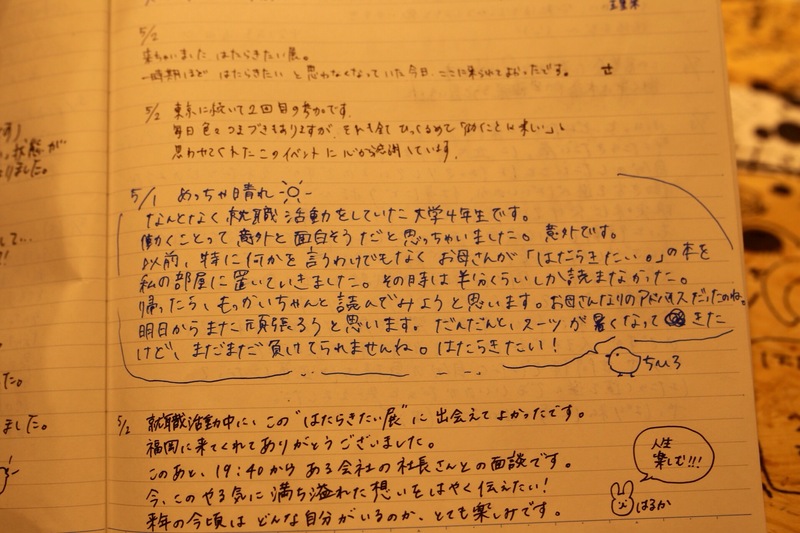 5/2
来ちゃいました はたらきたい展。
一時期ほど はたらきたい と思わなくなっていた今日、ここに来られてよかったです。 せ
5/2 東京に続いて2回目の参加です。
毎日色々つまづきもありますが、それも全てひっくるめて「働くことは楽しい」と
思わせてくれたこのイベントに心から感謝しています。
5/1 めっちゃ晴れ
なんとなく就職活動をしていた大学4年生です。
働くことって意外と面白そうだと思っちゃいました。意外です。
以前、特に何かを言うわけでもなく お母さんが「はたらきたい。」の本を
私の部屋に置いていきました。その時は半分くらいしか読まなかった。
帰ったら、もっかいちゃんと読んでみようと思います。お母さんなりのアドバイスだったのね。
明日からまた頑張ろうと思います。だんだんと、スーツが暑くなって きた
けど、まだまだ負けてられませんね。はたらきたい!
ちひろ
5/2 就職活動中に、この"はたらきたい展"に出会えてよかったです。
福岡に来てくれてありがとうございました。
このあと、19:40から ある会社の社長さんとの面談です。
今、このやる気に満ち溢れた想いをはやく伝えたい!
来年の今頃は どんな自分がいるのか、とても楽しみです。
人生
楽しむ!!!
はるか
状態が
りました。
ました。